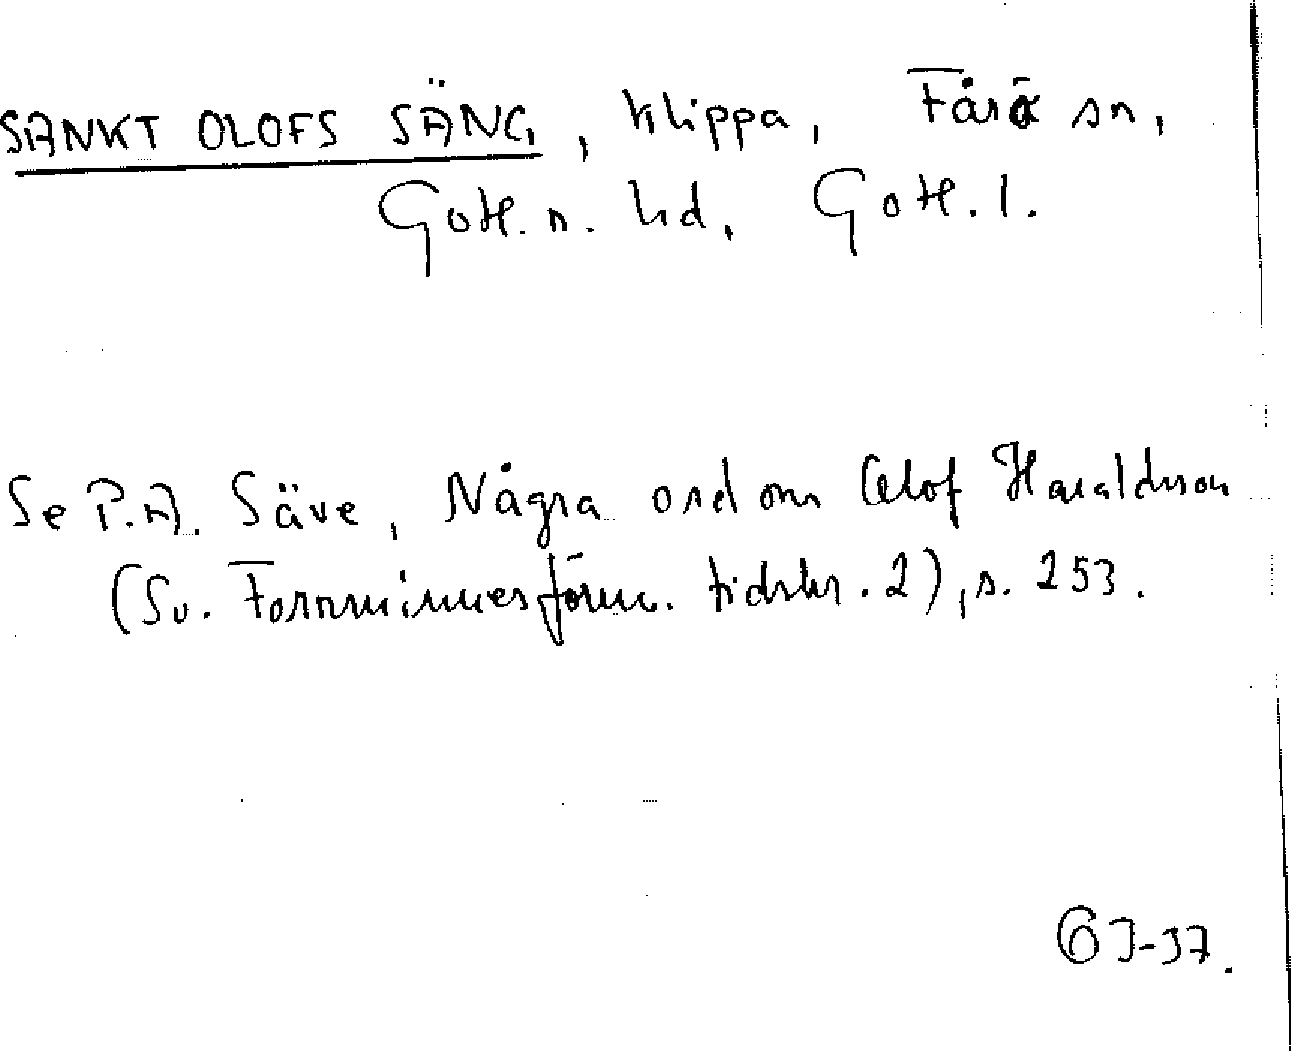 SANKT OLOFS SÄNG, klippa, Fårö sn,
Gotl. n. hd, Gotl. l.
Se P.A. Säve, Några ord om Olof Haraldsson
(Sv. Fornminnesfören. tidskr. 2), s. 253.